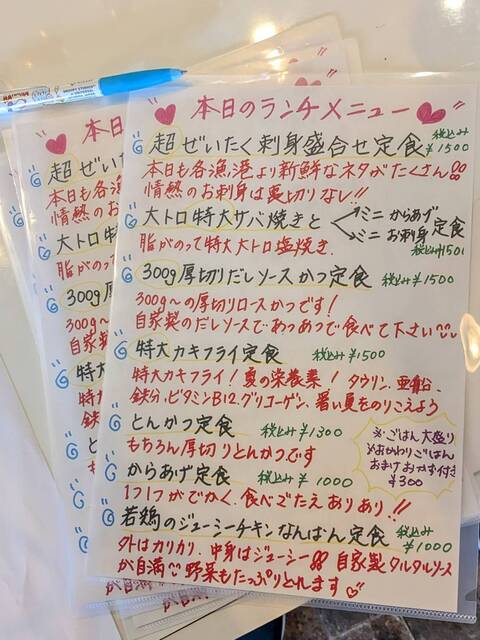 本日のランチメニュー
超ぜいたく刺身盛合せ定食 税込み ¥1500
本日も各漁港より新鮮なネタがたくさん!!
情熱のお刺身は裏切りなし!!
大トロ特大サバ焼きと ミニ からあげ 定食
ミニ お刺身
脂がのって特大大トロ塩焼き. 税込み¥1501
300g厚切りだしソースかつ定食 税込み ¥1500
300g〜の厚切りロースかつです!
自家製のだしソースであつあつで食べて下さい
特大カキフライ定食 税込み ¥1500
特大カキフライ!夏の栄養素! タウリン、亜鉛、
鉄分、ビタミンB12、グリコーゲン、暑い夏をのりこえよう
とんかつ定食 税込み ¥1300
もちろん厚切りとんかつです
からあげ定食 税込み ¥1000
1つ1つがでかく、食べごたえありあり!!
※ごはん大盛り
おかわりごはん
おまけおかず付き
¥300
若鶏のジューシーチキンなんばん定食 税込み ¥1000
外はカリカリ、中身はジューシー!! 自家製タルタルソース
が自満 野菜もたっぷりとれます
本日
超ぜいた
本日も各漁
情熱の
大トロ特
脂がのっ
300g厚
300g〜
自家製
特大
特
鉄
と
も
か